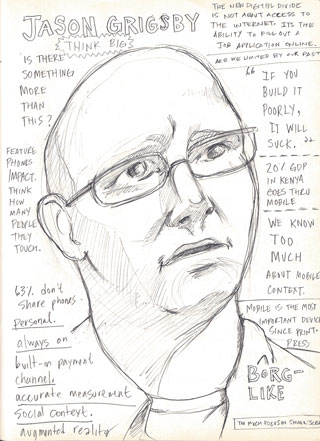 JASON GRIGSBY
THINK BIG
THE NEW DIGITAL DIVIDE
IS NOT ABOUT ACCESS TO
THE INTERNET. ITS THE
ABILITY TO FILL OUT A
JOB APPLICATION ONLINE.
ARE WE LIMITED BY OUR PAST
IS THERE
SOMETHING
MORE
THAN
THIS?
"IF YOU
BUILD IT
POORLY,
IT WILL
SUCK."
FEATURE
PHONES
IMPACT.
THINK
HOW
MANY
PEOPLE
THEY
TOUCH.
20% GDP
IN KENYA
GOES THRU
MOBILE
WE KNOW
TOO
MUCH
ABOUT MOBILE
CONTEXT.
63% don't
share phones.
Personal.
always on
built-in payment
channel.
accurate measurement
social context.
augmented reality
MOBILE IS THE MOST
IMPORTANT DEVICE
SINCE PRINT-
PRESS
BORG-
LIKE
TOO MUCH FOCUS ON SMALL